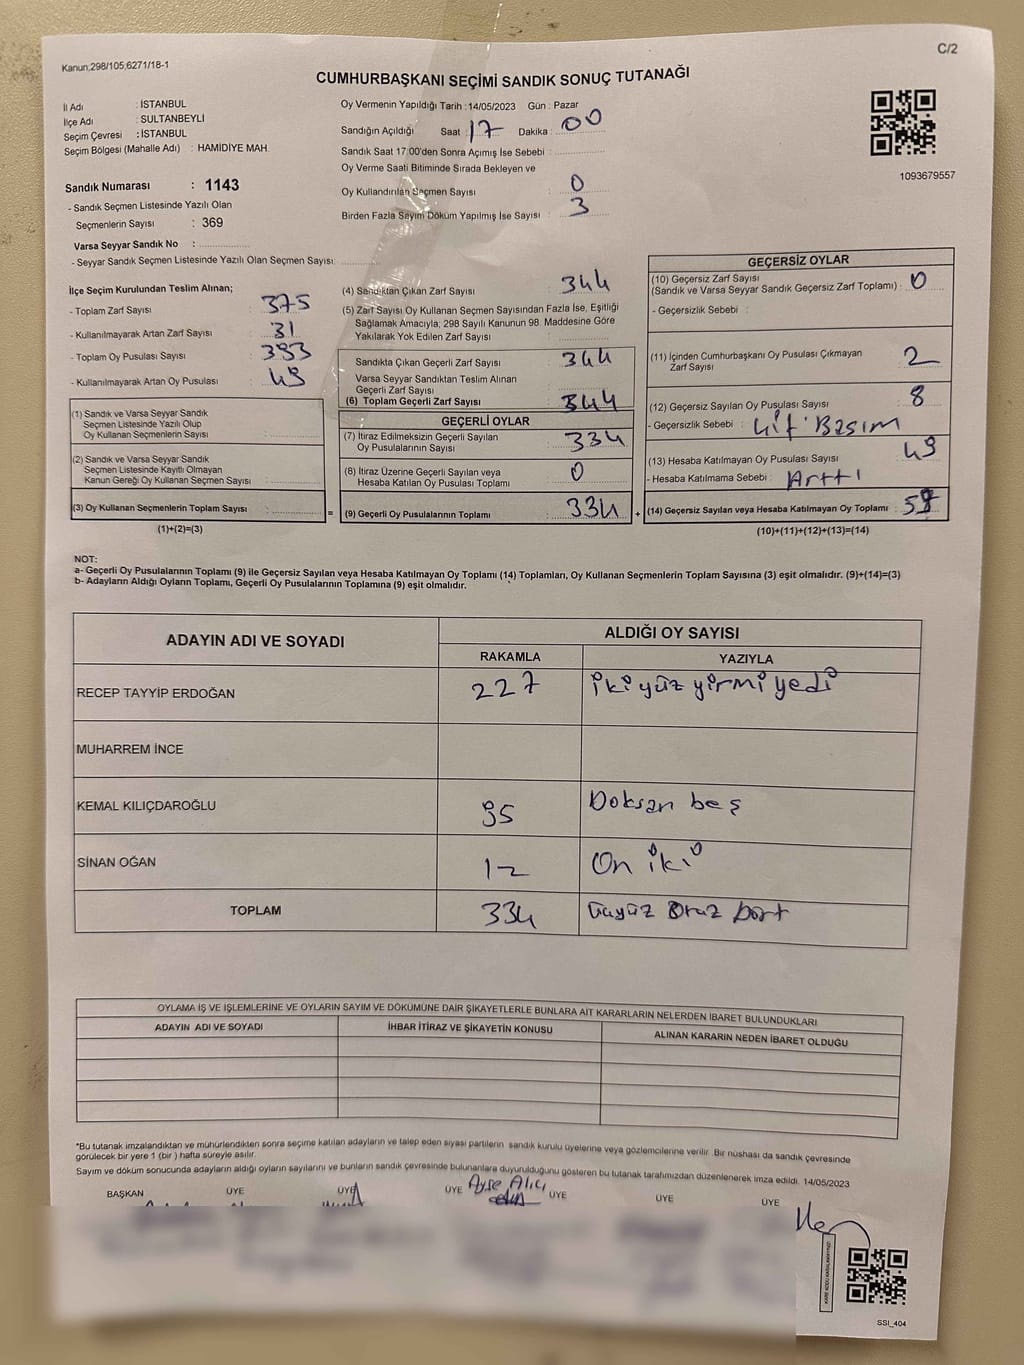 C/2
Kanun;298/105,6271/18-1
CUMHURBAŞKANI SEÇİMİ SANDIK SONUÇ TUTANAĞI
İl Adı : İSTANBUL
İlçe Adı : SULTANBEYLİ
Seçim Çevresi : İSTANBUL
Seçim Bölgesi (Mahalle Adı) : HAMİDİYE MAH.
Oy Vermenin Yapıldığı Tarih : 14/05/2023 Gün : Pazar
Sandığın Açıldığı Saat : 17 Dakika : 00
Sandık Saat 17:00'den Sonra Açımış İse Sebebi :
Oy Verme Saati Bitiminde Sırada Bekleyen ve
Oy Kullandırılan Seçmen Sayısı : 0
Birden Fazla Sayım Döküm Yapılmış İse Sayısı : 3
1093679557
Sandık Numarası : 1143
- Sandık Seçmen Listesinde Yazılı Olan
Seçmenlerin Sayısı : 369
Varsa Seyyar Sandık No :
- Seyyar Sandık Seçmen Listesinde Yazılı Olan Seçmen Sayısı:
İlçe Seçim Kurulundan Teslim Alınan;
- Toplam Zarf Sayısı : 375
- Kullanılmayarak Artan Zarf Sayısı : 31
- Toplam Oy Pusulası Sayısı : 393
- Kullanılmayarak Artan Oy Pusulası : 49
(1) Sandık ve Varsa Seyyar Sandık
Seçmen Listesinde Yazılı Olup
Oy Kullanan Seçmenlerin Sayısı :
(2) Sandık ve Varsa Seyyar Sandık
Seçmen Listesinde Kayıtlı Olmayan
Kanun Gereği Oy Kullanan Seçmen Sayısı :
(3) Oy Kullanan Seçmenlerin Toplam Sayısı :
(1)+(2)=(3)
=
(4) Sandıktan Çıkan Zarf Sayısı : 344
(5) Zarf Sayısı Oy Kullanan Seçmen Sayısından Fazla İse, Eşitliği
Sağlamak Amacıyla; 298 Sayılı Kanunun 98. Maddesine Göre
Yakılarak Yok Edilen Zarf Sayısı :
Sandıkta Çıkan Geçerli Zarf Sayısı : 344
Varsa Seyyar Sandıktan Teslim Alınan
Geçerli Zarf Sayısı :
(6) Toplam Geçerli Zarf Sayısı : 344
GEÇERLİ OYLAR
(7) İtiraz Edilmeksizin Geçerli Sayılan
Oy Pusulalarının Sayısı : 334
(8) İtiraz Üzerine Geçerli Sayılan veya
Hesaba Katılan Oy Pusulası Toplamı : 0
(9) Geçerli Oy Pusulalarının Toplamı : 334
+
GEÇERSİZ OYLAR
(10) Geçersiz Zarf Sayısı
(Sandık ve Varsa Seyyar Sandık Geçersiz Zarf Toplamı) : 0
- Geçersizlik Sebebi :
(11) İçinden Cumhurbaşkanı Oy Pusulası Çıkmayan
Zarf Sayısı : 2
(12) Geçersiz Sayılan Oy Pusulası Sayısı : 8
- Geçersizlik Sebebi : Çift Basım
(13) Hesaba Katılmayan Oy Pusulası Sayısı : 49
- Hesaba Katılmama Sebebi : Arttı
(14) Geçersiz Sayılan veya Hesaba Katılmayan Oy Toplamı : 59
(10)+(11)+(12)+(13)=(14)
NOT:
a- Geçerli Oy Pusulalarının Toplamı (9) ile Geçersiz Sayılan veya Hesaba Katılmayan Oy Toplamı (14) Toplamları, Oy Kullanan Seçmenlerin Toplam Sayısına (3) eşit olmalıdır. (9)+(14)=(3)
b- Adayların Aldığı Oyların Toplamı, Geçerli Oy Pusulalarının Toplamına (9) eşit olmalıdır.
ADAYIN ADI VE SOYADI
ALDIĞI OY SAYISI
RAKAMLA YAZIYLA
RECEP TAYYİP ERDOĞAN 227 iki yüz yirmi yedi
MUHARREM İNCE
KEMAL KILIÇDAROĞLU 95 Doksan beş
SİNAN OĞAN 12 On iki
TOPLAM 334 üçyüz Otuz Dört
OYLAMA İŞ VE İŞLEMLERİNE VE OYLARIN SAYIM VE DÖKÜMÜNE DAİR ŞİKAYETLERLE BUNLARA AİT KARARLARIN NELERDEN İBARET BULUNDUKLARI
ADAYIN ADI VE SOYADI İHBAR İTİRAZ VE ŞİKAYETİN KONUSU ALINAN KARARIN NEDEN İBARET OLDUĞU
*Bu tutanak imzalandıktan ve mühürlendikten sonra seçime katılan adayların ve talep eden siyasi partilerin sandık kurulu üyelerine veya gözlemcilerine verilir. Bir nüshası da sandık çevresinde
görülecek bir yere 1 (bir ) hafta süreyle asılır.
Sayım ve döküm sonucunda adayların aldığı oyların sayılarını ve bunların sandık çevresinde bulunanlara duyurulduğunu gösteren bu tutanak tarafımızdan düzenlenerek imza edildi. 14/05/2023
BAŞKAN ÜYE ÜYE ÜYE Ayse Alıcı ÜYE ÜYE ÜYE
SSI_404